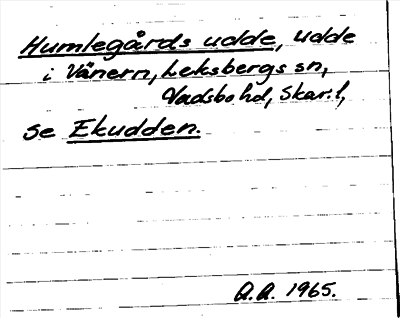 Humlegårds udde, udde
i Vänern, Leksbergs sn,
Vadsbo hd, Skar. l,
se Ekudden.
A.A. 1965.